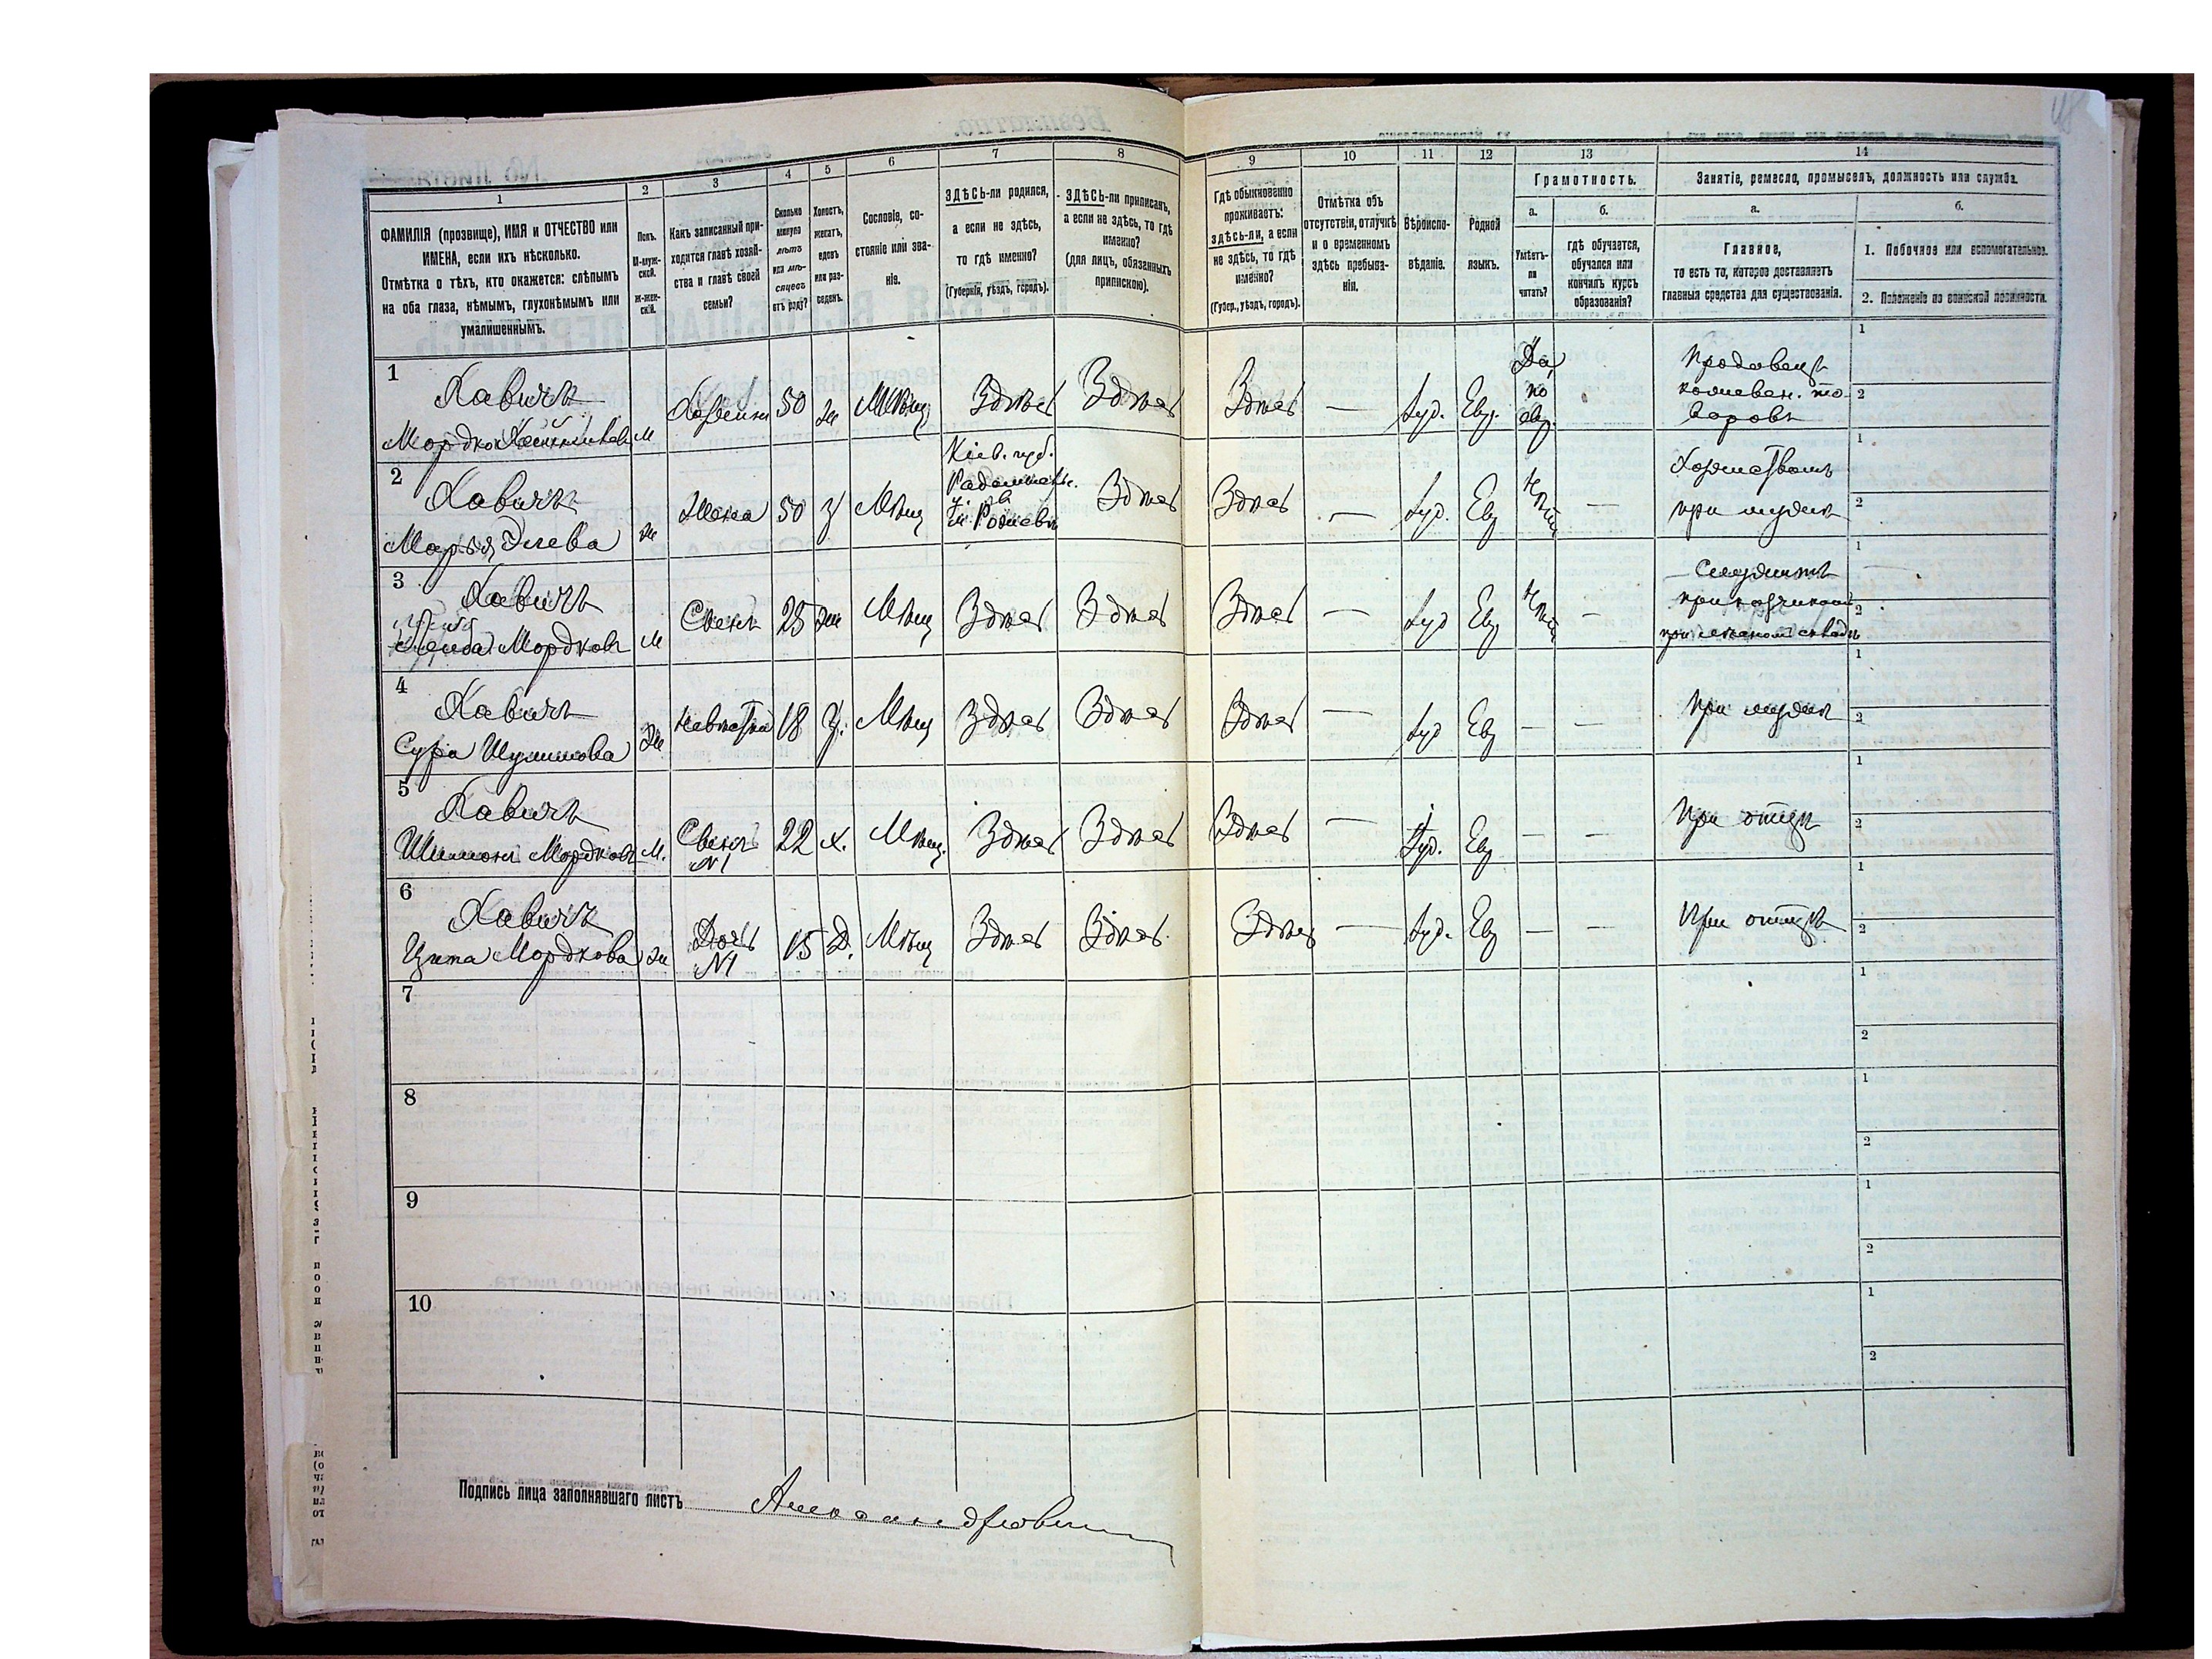 1
2
3
4
5
6
7
8
9
10
11
12
13
14
ФАМИЛІЯ (прозвище), ИМЯ и ОТЧЕСТВО или
ИМЕНА, если ихъ нѣсколько.
Отмѣтка о тѣхъ, кто окажется: слѣпымъ
на оба глаза, нѣмымъ, глухонѣмымъ или
умалишеннымъ.
Полъ.
М-муж-
ской.
Ж-жен-
скій.
Какъ записанный при-
ходится главѣ хозяй-
ства и главѣ своей
семьи?
Сколько
минуло
лѣтъ
или мѣ-
сяцевъ
отъ роду?
Холостъ,
женатъ,
вдовъ
или раз-
веденъ.
Сословіе, со-
стояніе или зва-
ніе.
ЗДѢСЬ-ли родился,
а если не здѣсь,
то гдѣ именно?
(Губернія, уѣздъ, городъ).
ЗДѢСЬ-ли приписанъ,
а если не здѣсь, то гдѣ
именно?
(для лицъ, обязанныхъ
припискою).
Гдѣ обыкновенно
проживаетъ:
здѣсь-ли, а если
не здѣсь, то гдѣ
именно?
(Губер., уѣздъ, городъ).
Отмѣтка объ
отсутствіи, отлучкѣ
и о временномъ
здѣсь пребыва-
ніи.
Вѣроиспо-
вѣданіе.
Родной
языкъ.
Грамотность.
а.
б.
Умѣетъ-
ли
читать?
гдѣ обучается,
обучался или
кончилъ курсъ
образованія?
Занятіе, ремесло, промыселъ, должность или служба.
а.
б.
Главное,
то есть то, которое доставляетъ
главныя средства для существованія.
1. Побочное или вспомогательное.
2. Положеніе по воинской повинности.
1
Хавичъ
Мордко
м
Хозяинъ
50
ж
Мѣщ
Здѣсь
Здѣсь
Здѣсь
—
Іуд.
Евр.
Да,
по
евр.
Продавецъ
то-
варовъ
1
2
2
Хавичъ
Марья
ж
Жена
50
З
Мѣщ
Кіев. губ.
Радомысль.
у.
Здѣсь
Здѣсь
—
Іуд.
Евр
Нѣтъ
—
при мужѣ
1
2
3
Хавичъ
Мордковъ
м
Сынъ
25
ж
Мѣщ
Здѣсь
Здѣсь
Здѣсь
—
Іуд
Евр
Нѣтъ
—
Служитъ
1
2
4
Хавичъ
Сура Шулимова
ж
Невѣстка
18
З.
Мѣщ
Здѣсь
Здѣсь
Здѣсь
—
Іуд
Евр
—
—
При мужѣ
1
2
5
Хавичъ
Шимонъ Мордковъ
м.
Сынъ
№1
22
х.
Мѣщ.
Здѣсь
Здѣсь
Здѣсь
—
Іуд.
Евр
—
—
При отцѣ
1
2
6
Хавичъ
Мордкова
ж
Дочь
№1
15
Д.
Мѣщ
Здѣсь
Здѣсь
Здѣсь
—
Іуд.
Евр
—
—
При отцѣ
1
2
7
1
2
8
1
2
9
1
2
10
1
2
Подпись лица заполнявшаго листъ